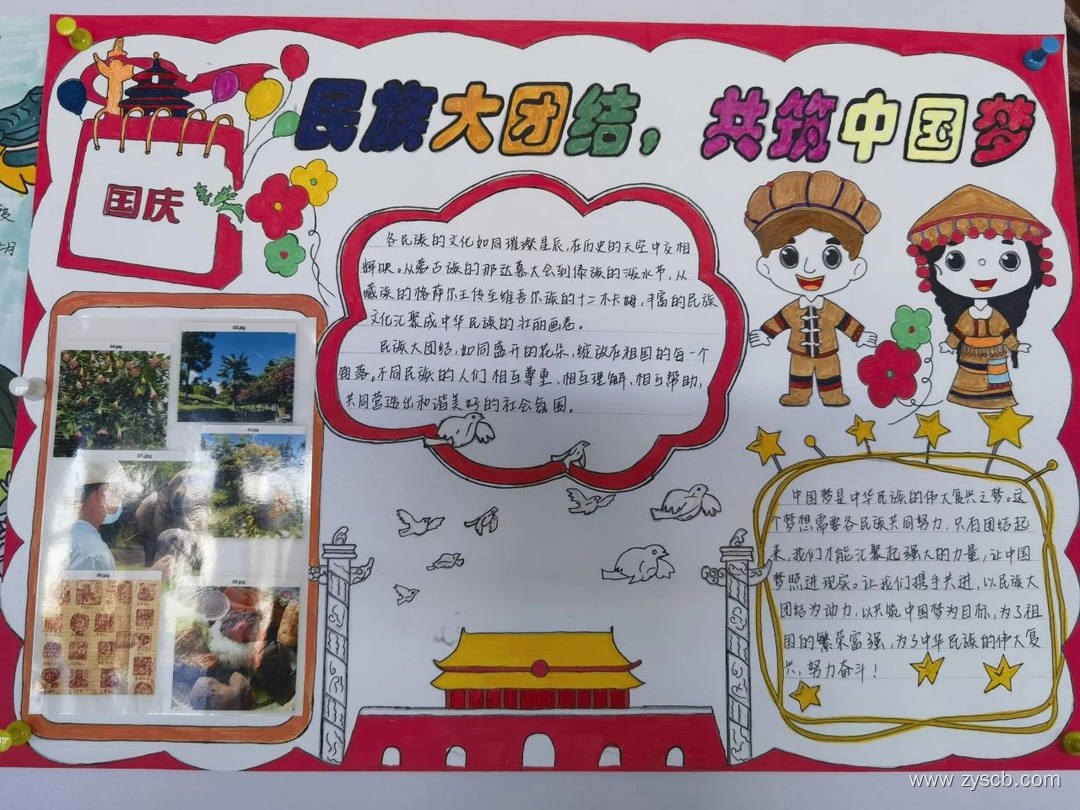 民族大团结，共筑中国梦
国庆
各民族的文化如同璀璨星辰，在历史的天空中交相
辉映。从蒙古族的那达慕大会到傣族的泼水节，从
藏族的格萨尔王传至维吾尔族的十二木卡姆，丰富的民族
文化汇聚成中华民族的壮丽画卷。
民族大团结，如同盛开的花朵，绽放在祖国的每一个
角落。不同民族的人们相互尊重、相互理解、相互帮助，
共同营造出和谐美好的社会氛围。
中国梦是中华民族的伟大复兴之梦。这
个梦想需要各民族共同努力，只有团结起
来，我们才能汇聚起强大的力量，让中国
梦照进现实。让我们携手共进，以民族大
团结为动力，以共筑中国梦为目标，为了祖
国的繁荣富强，为了中华民族的伟大复
兴，努力奋斗！
www.zyscb.com